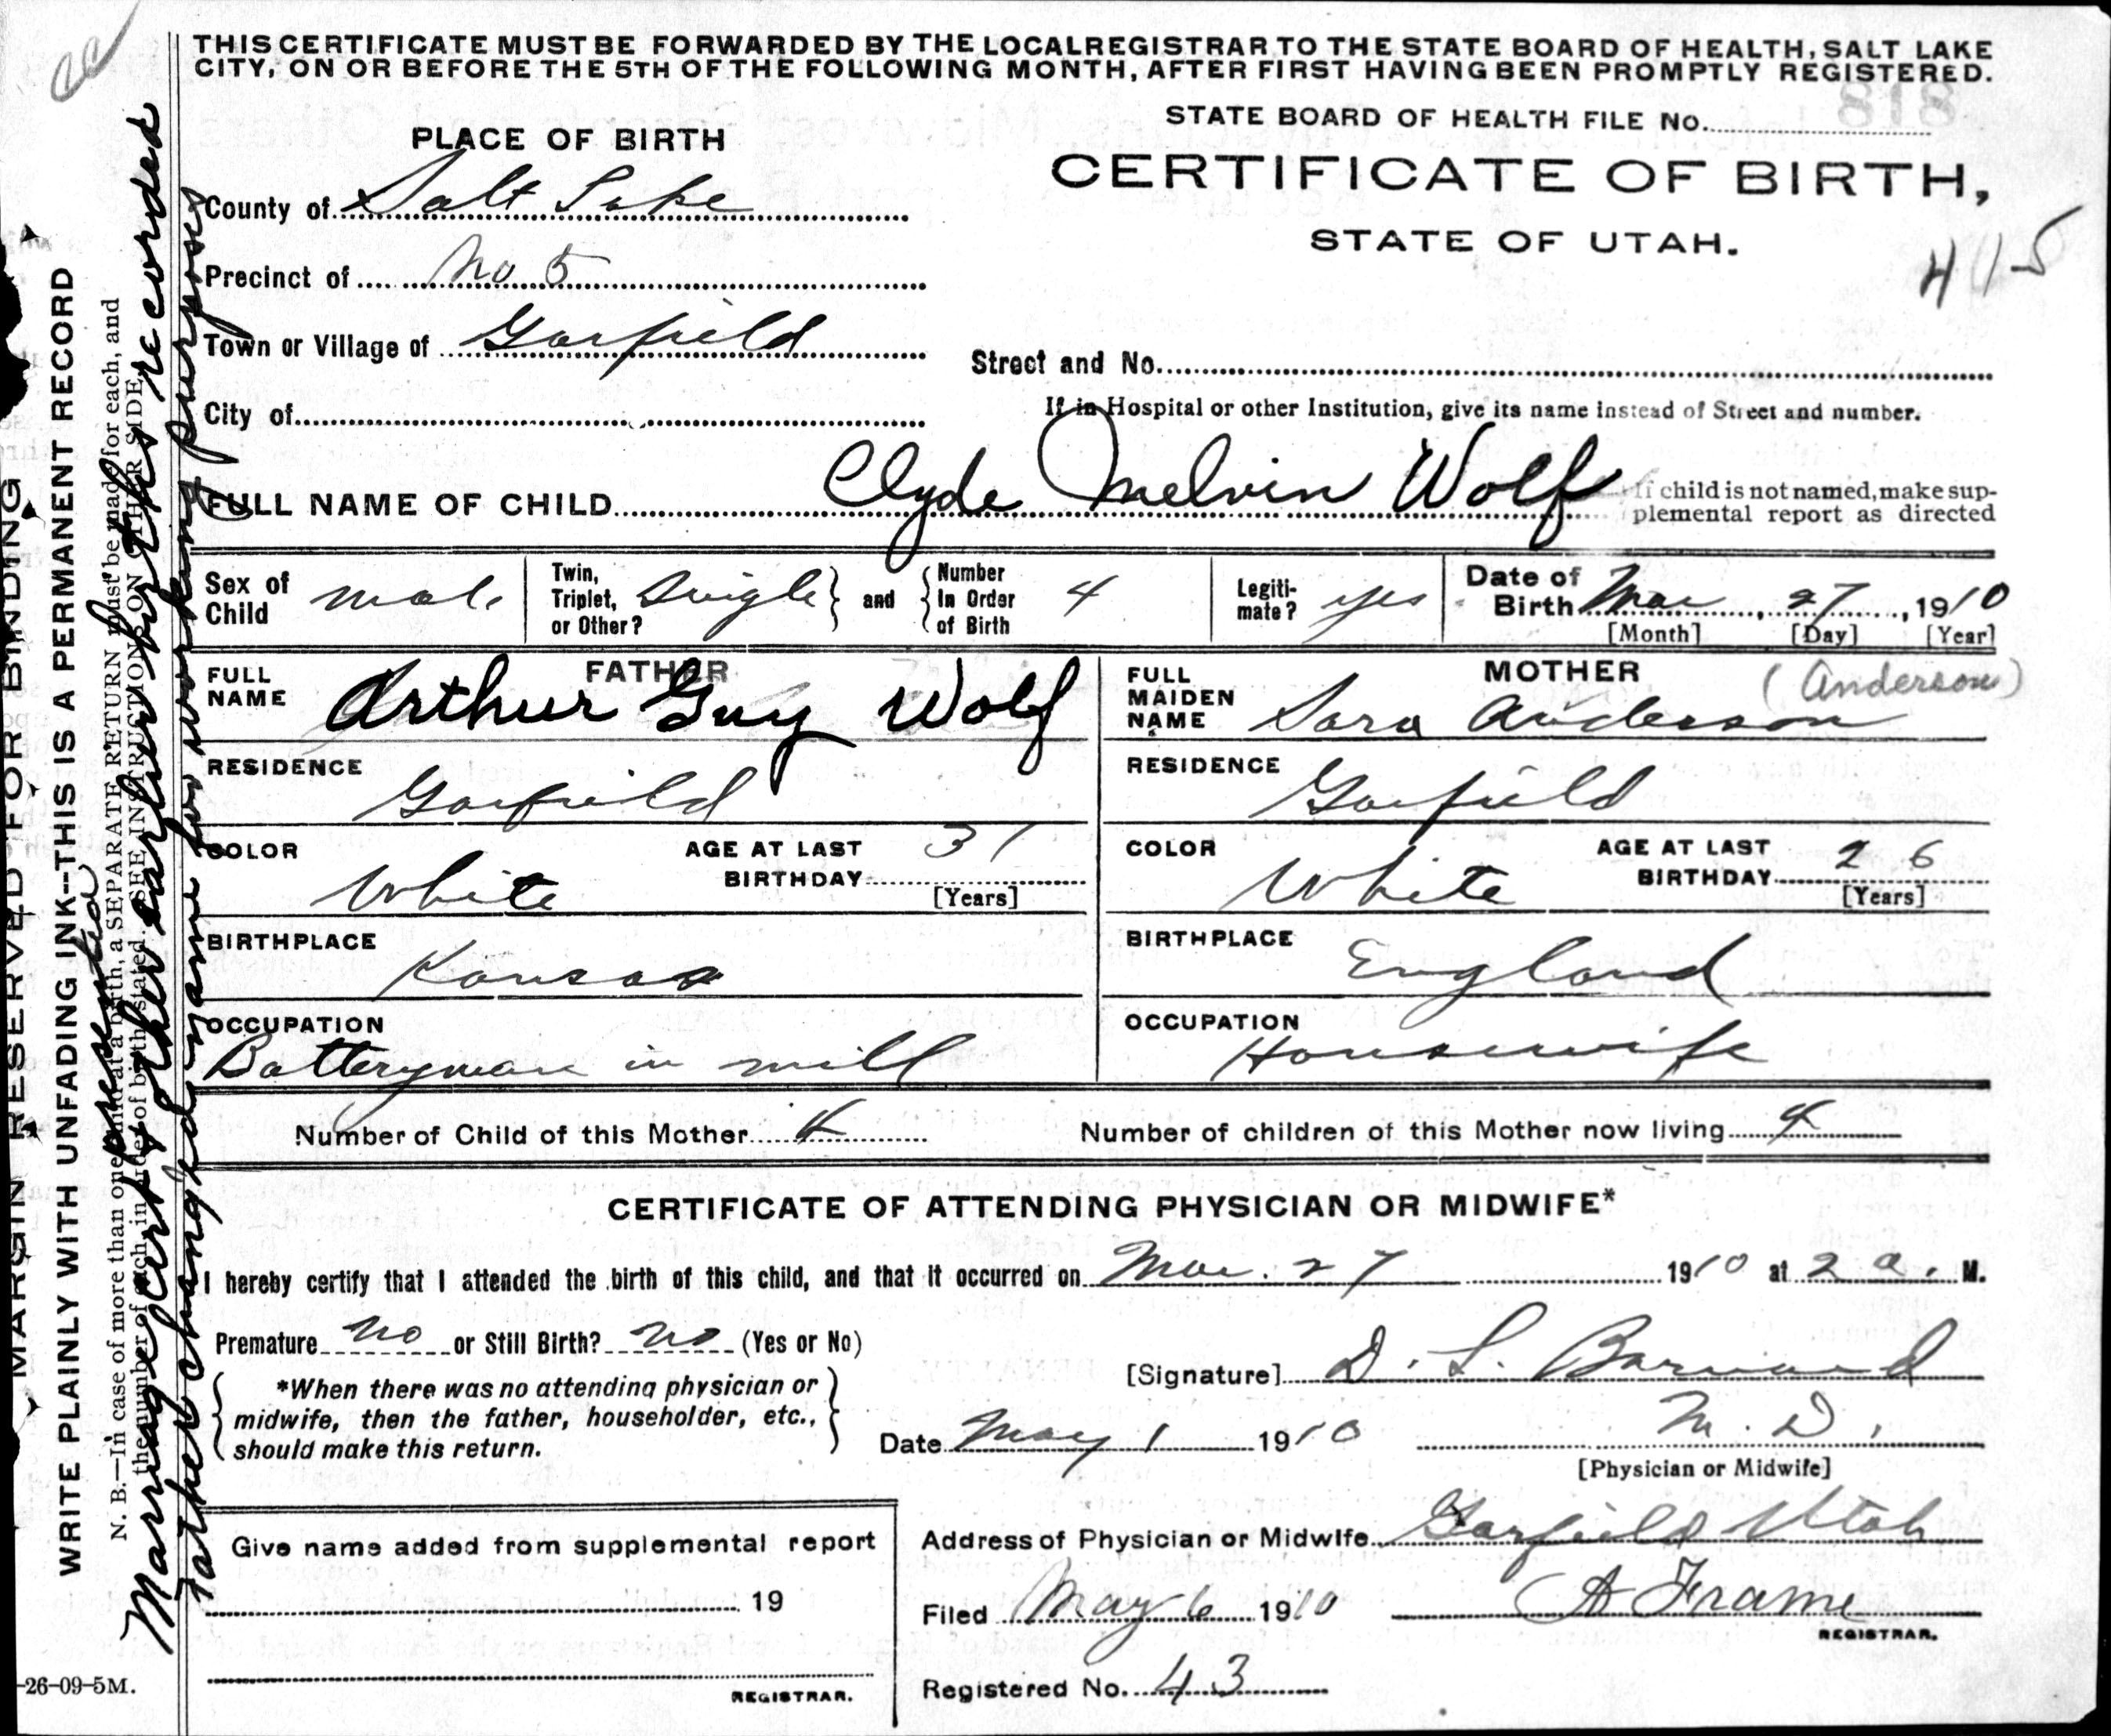 THIS CERTIFICATE MUST BE FORWARDED BY THE LOCAL REGISTRAR TO THE STATE BOARD OF HEALTH, SALT LAKE
CITY, ON OR BEFORE THE 5TH OF THE FOLLOWING MONTH, AFTER FIRST HAVING BEEN PROMPTLY REGISTERED.
STATE BOARD OF HEALTH FILE No. 818
PLACE OF BIRTH
CERTIFICATE OF BIRTH,
STATE OF UTAH.
415
County of Salt Lake
Precinct of No 5
Town or Village of Garfield
Street and No.
City of
If in Hospital or other Institution, give its name instead of Street and number.
FULL NAME OF CHILD Clyde Melvin Wolf
If child is not named, make sup-
plemental report as directed
Sex of Child male
Twin, Triplet, or Other? Single and Number In Order of Birth 4
Legiti-mate? yes
Date of Birth Mar, 27, 1910
[Month] [Day] [Year]
FATHER
FULL NAME Arthur Guy Wolf
RESIDENCE Garfield
COLOR White
AGE AT LAST BIRTHDAY 31
[Years]
BIRTHPLACE Kansas
OCCUPATION
Batteryman in mill
MOTHER (Anderson)
FULL MAIDEN NAME Sara Anderson
RESIDENCE Garfield
COLOR White
AGE AT LAST BIRTHDAY 26
[Years]
BIRTHPLACE England
OCCUPATION
Housewife
Number of Child of this Mother 4
Number of children of this Mother now living 4
CERTIFICATE OF ATTENDING PHYSICIAN OR MIDWIFE*
I hereby certify that I attended the birth of this child, and that it occurred on Mar. 27 1910 at 2 a. M.
Premature no or Still Birth? no (Yes or No)
*When there was no attending physician or
midwife, then the father, householder, etc.,
should make this return.
[Signature] D. L. Barnard
Date May 1 1910
M. D.
[Physician or Midwife]
Give name added from supplemental report
19
REGISTRAR.
Address of Physician or Midwife Garfield Utah
Filed May 6 1910
A Frame
REGISTRAR.
Registered No. 43
MARGIN RESERVED FOR BINDING
WRITE PLAINLY WITH UNFADING INK--THIS IS A PERMANENT RECORD
N. B.—In case of more than one child at a birth, a SEPARATE RETURN must be made for each, and
the number of each, in order of birth, stated. SEE INSTRUCTION ON OTHER SIDE.
Marriage cert & other earlier births recorded
presented
Father changed name for working purposes
-26-09-5M.